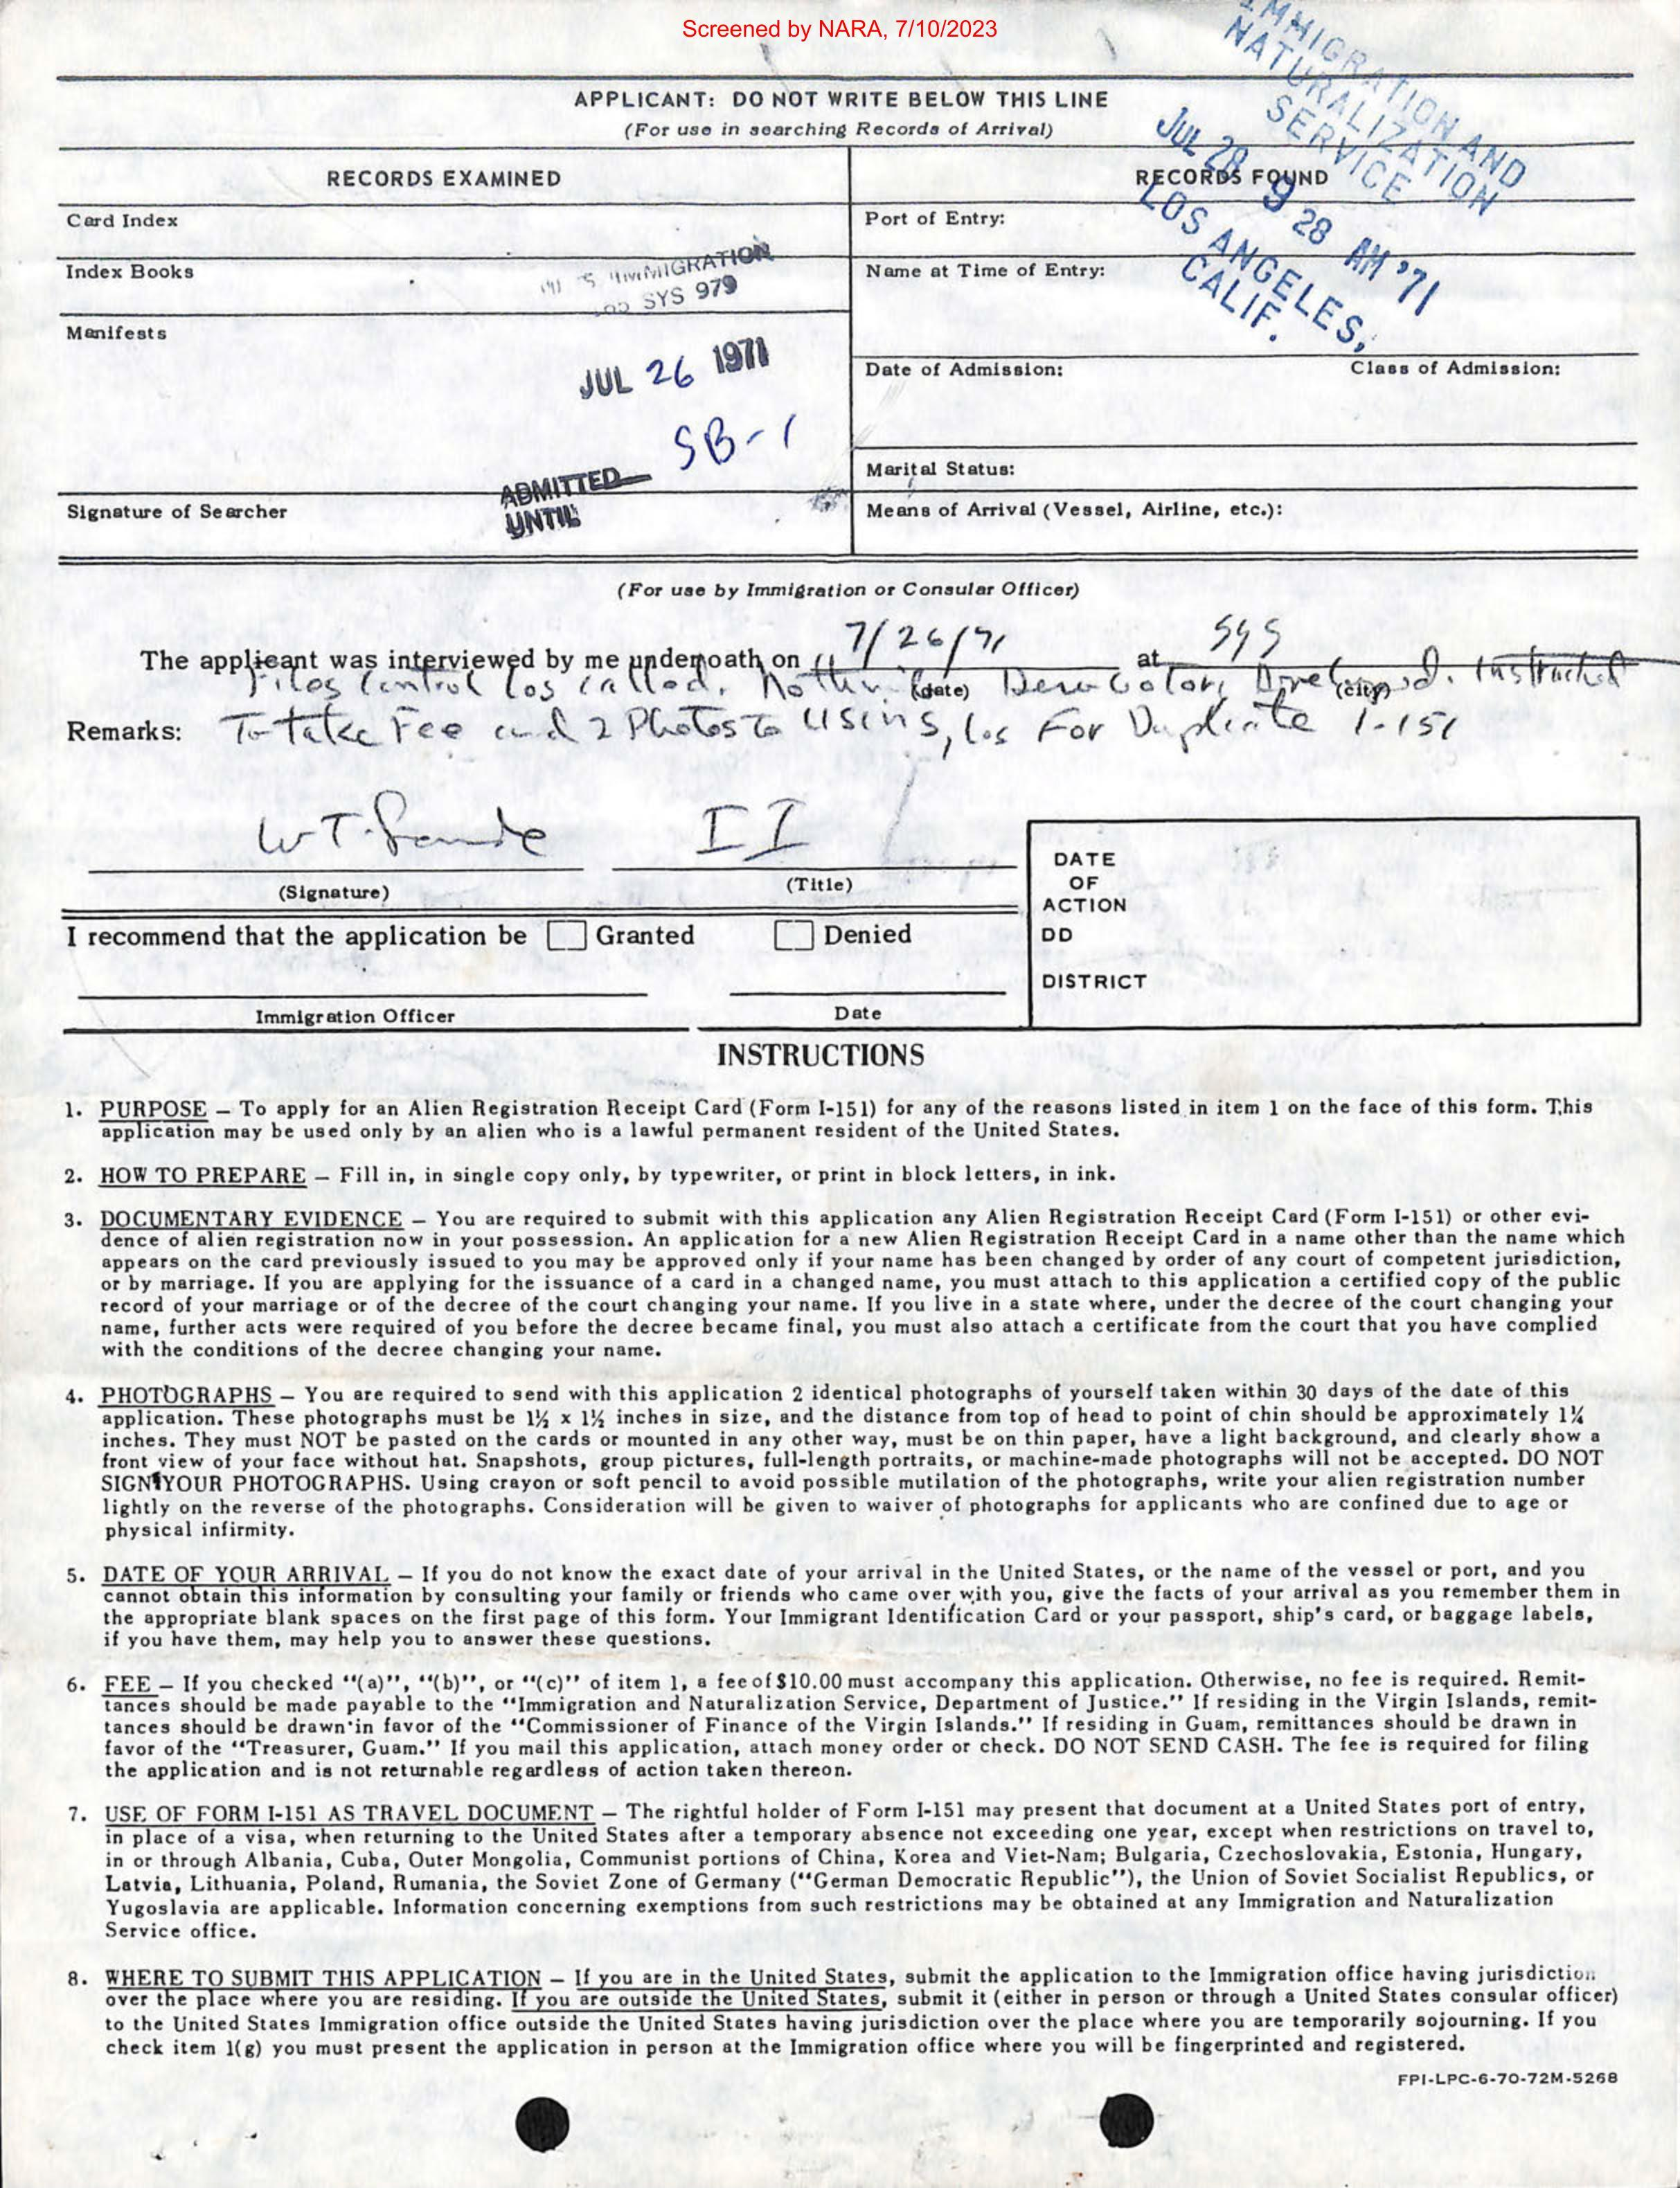 Screened by NARA, 7/10/2023
IMMIGRATION AND
NATURALIZATION
SERVICE
JUL 28 9 28 AM '71
LOS ANGELES,
CALIF.
APPLICANT: DO NOT WRITE BELOW THIS LINE
(For use in searching Records of Arrival)
RECORDS EXAMINED
RECORDS FOUND
Card Index
Port of Entry:
Index Books
Name at Time of Entry:
IMMIGRATION
SYS 979
Manifests
JUL 26 1971
Date of Admission:
Class of Admission:
SB-1
Marital Status:
ADMITTED
UNTIL
Signature of Searcher
Means of Arrival (Vessel, Airline, etc.):
(For use by Immigration or Consular Officer)
The applicant was interviewed by me under oath on 7/26/71 at SYS
(date) (city)
Files Control Los called. Nothing Derogatory Developed. Instructed
Remarks: To take Fee and 2 Photos to USINS, Los For Duplicate I-151
W T. II
(Signature) (Title)
DATE
OF
ACTION
DD
DISTRICT
I recommend that the application be Granted Denied
Immigration Officer Date
INSTRUCTIONS
1. PURPOSE — To apply for an Alien Registration Receipt Card (Form I-151) for any of the reasons listed in item 1 on the face of this form. This
application may be used only by an alien who is a lawful permanent resident of the United States.
2. HOW TO PREPARE — Fill in, in single copy only, by typewriter, or print in block letters, in ink.
3. DOCUMENTARY EVIDENCE — You are required to submit with this application any Alien Registration Receipt Card (Form I-151) or other evi-
dence of alien registration now in your possession. An application for a new Alien Registration Receipt Card in a name other than the name which
appears on the card previously issued to you may be approved only if your name has been changed by order of any court of competent jurisdiction,
or by marriage. If you are applying for the issuance of a card in a changed name, you must attach to this application a certified copy of the public
record of your marriage or of the decree of the court changing your name. If you live in a state where, under the decree of the court changing your
name, further acts were required of you before the decree became final, you must also attach a certificate from the court that you have complied
with the conditions of the decree changing your name.
4. PHOTOGRAPHS — You are required to send with this application 2 identical photographs of yourself taken within 30 days of the date of this
application. These photographs must be 1½ x 1½ inches in size, and the distance from top of head to point of chin should be approximately 1¼
inches. They must NOT be pasted on the cards or mounted in any other way, must be on thin paper, have a light background, and clearly show a
front view of your face without hat. Snapshots, group pictures, full-length portraits, or machine-made photographs will not be accepted. DO NOT
SIGN YOUR PHOTOGRAPHS. Using crayon or soft pencil to avoid possible mutilation of the photographs, write your alien registration number
lightly on the reverse of the photographs. Consideration will be given to waiver of photographs for applicants who are confined due to age or
physical infirmity.
5. DATE OF YOUR ARRIVAL — If you do not know the exact date of your arrival in the United States, or the name of the vessel or port, and you
cannot obtain this information by consulting your family or friends who came over with you, give the facts of your arrival as you remember them in
the appropriate blank spaces on the first page of this form. Your Immigrant Identification Card or your passport, ship's card, or baggage labels,
if you have them, may help you to answer these questions.
6. FEE — If you checked "(a)", "(b)", or "(c)" of item 1, a fee of $10.00 must accompany this application. Otherwise, no fee is required. Remit-
tances should be made payable to the "Immigration and Naturalization Service, Department of Justice." If residing in the Virgin Islands, remit-
tances should be drawn in favor of the "Commissioner of Finance of the Virgin Islands." If residing in Guam, remittances should be drawn in
favor of the "Treasurer, Guam." If you mail this application, attach money order or check. DO NOT SEND CASH. The fee is required for filing
the application and is not returnable regardless of action taken thereon.
7. USE OF FORM I-151 AS TRAVEL DOCUMENT — The rightful holder of Form I-151 may present that document at a United States port of entry,
in place of a visa, when returning to the United States after a temporary absence not exceeding one year, except when restrictions on travel to,
in or through Albania, Cuba, Outer Mongolia, Communist portions of China, Korea and Viet-Nam; Bulgaria, Czechoslovakia, Estonia, Hungary,
Latvia, Lithuania, Poland, Rumania, the Soviet Zone of Germany ("German Democratic Republic"), the Union of Soviet Socialist Republics, or
Yugoslavia are applicable. Information concerning exemptions from such restrictions may be obtained at any Immigration and Naturalization
Service office.
8. WHERE TO SUBMIT THIS APPLICATION — If you are in the United States, submit the application to the Immigration office having jurisdiction
over the place where you are residing. If you are outside the United States, submit it (either in person or through a United States consular officer)
to the United States Immigration office outside the United States having jurisdiction over the place where you are temporarily sojourning. If you
check item 1(g) you must present the application in person at the Immigration office where you will be fingerprinted and registered.
FPI-LPC-6-70-72M-5268